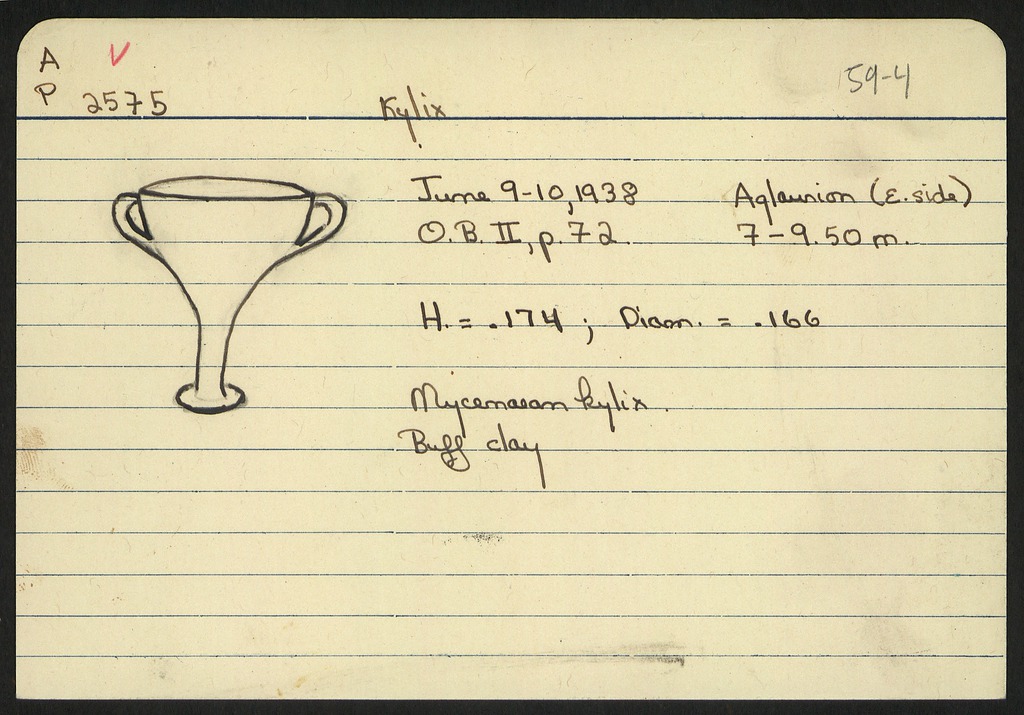 A V
P 2575 Kylix 159-4
June 9-10, 1938 Aglaurion (E. side)
O.B. II, p. 72. 7-9.50 m.
H. = .174 ; Diam. = .166
Mycenaean kylix.
Buff clay